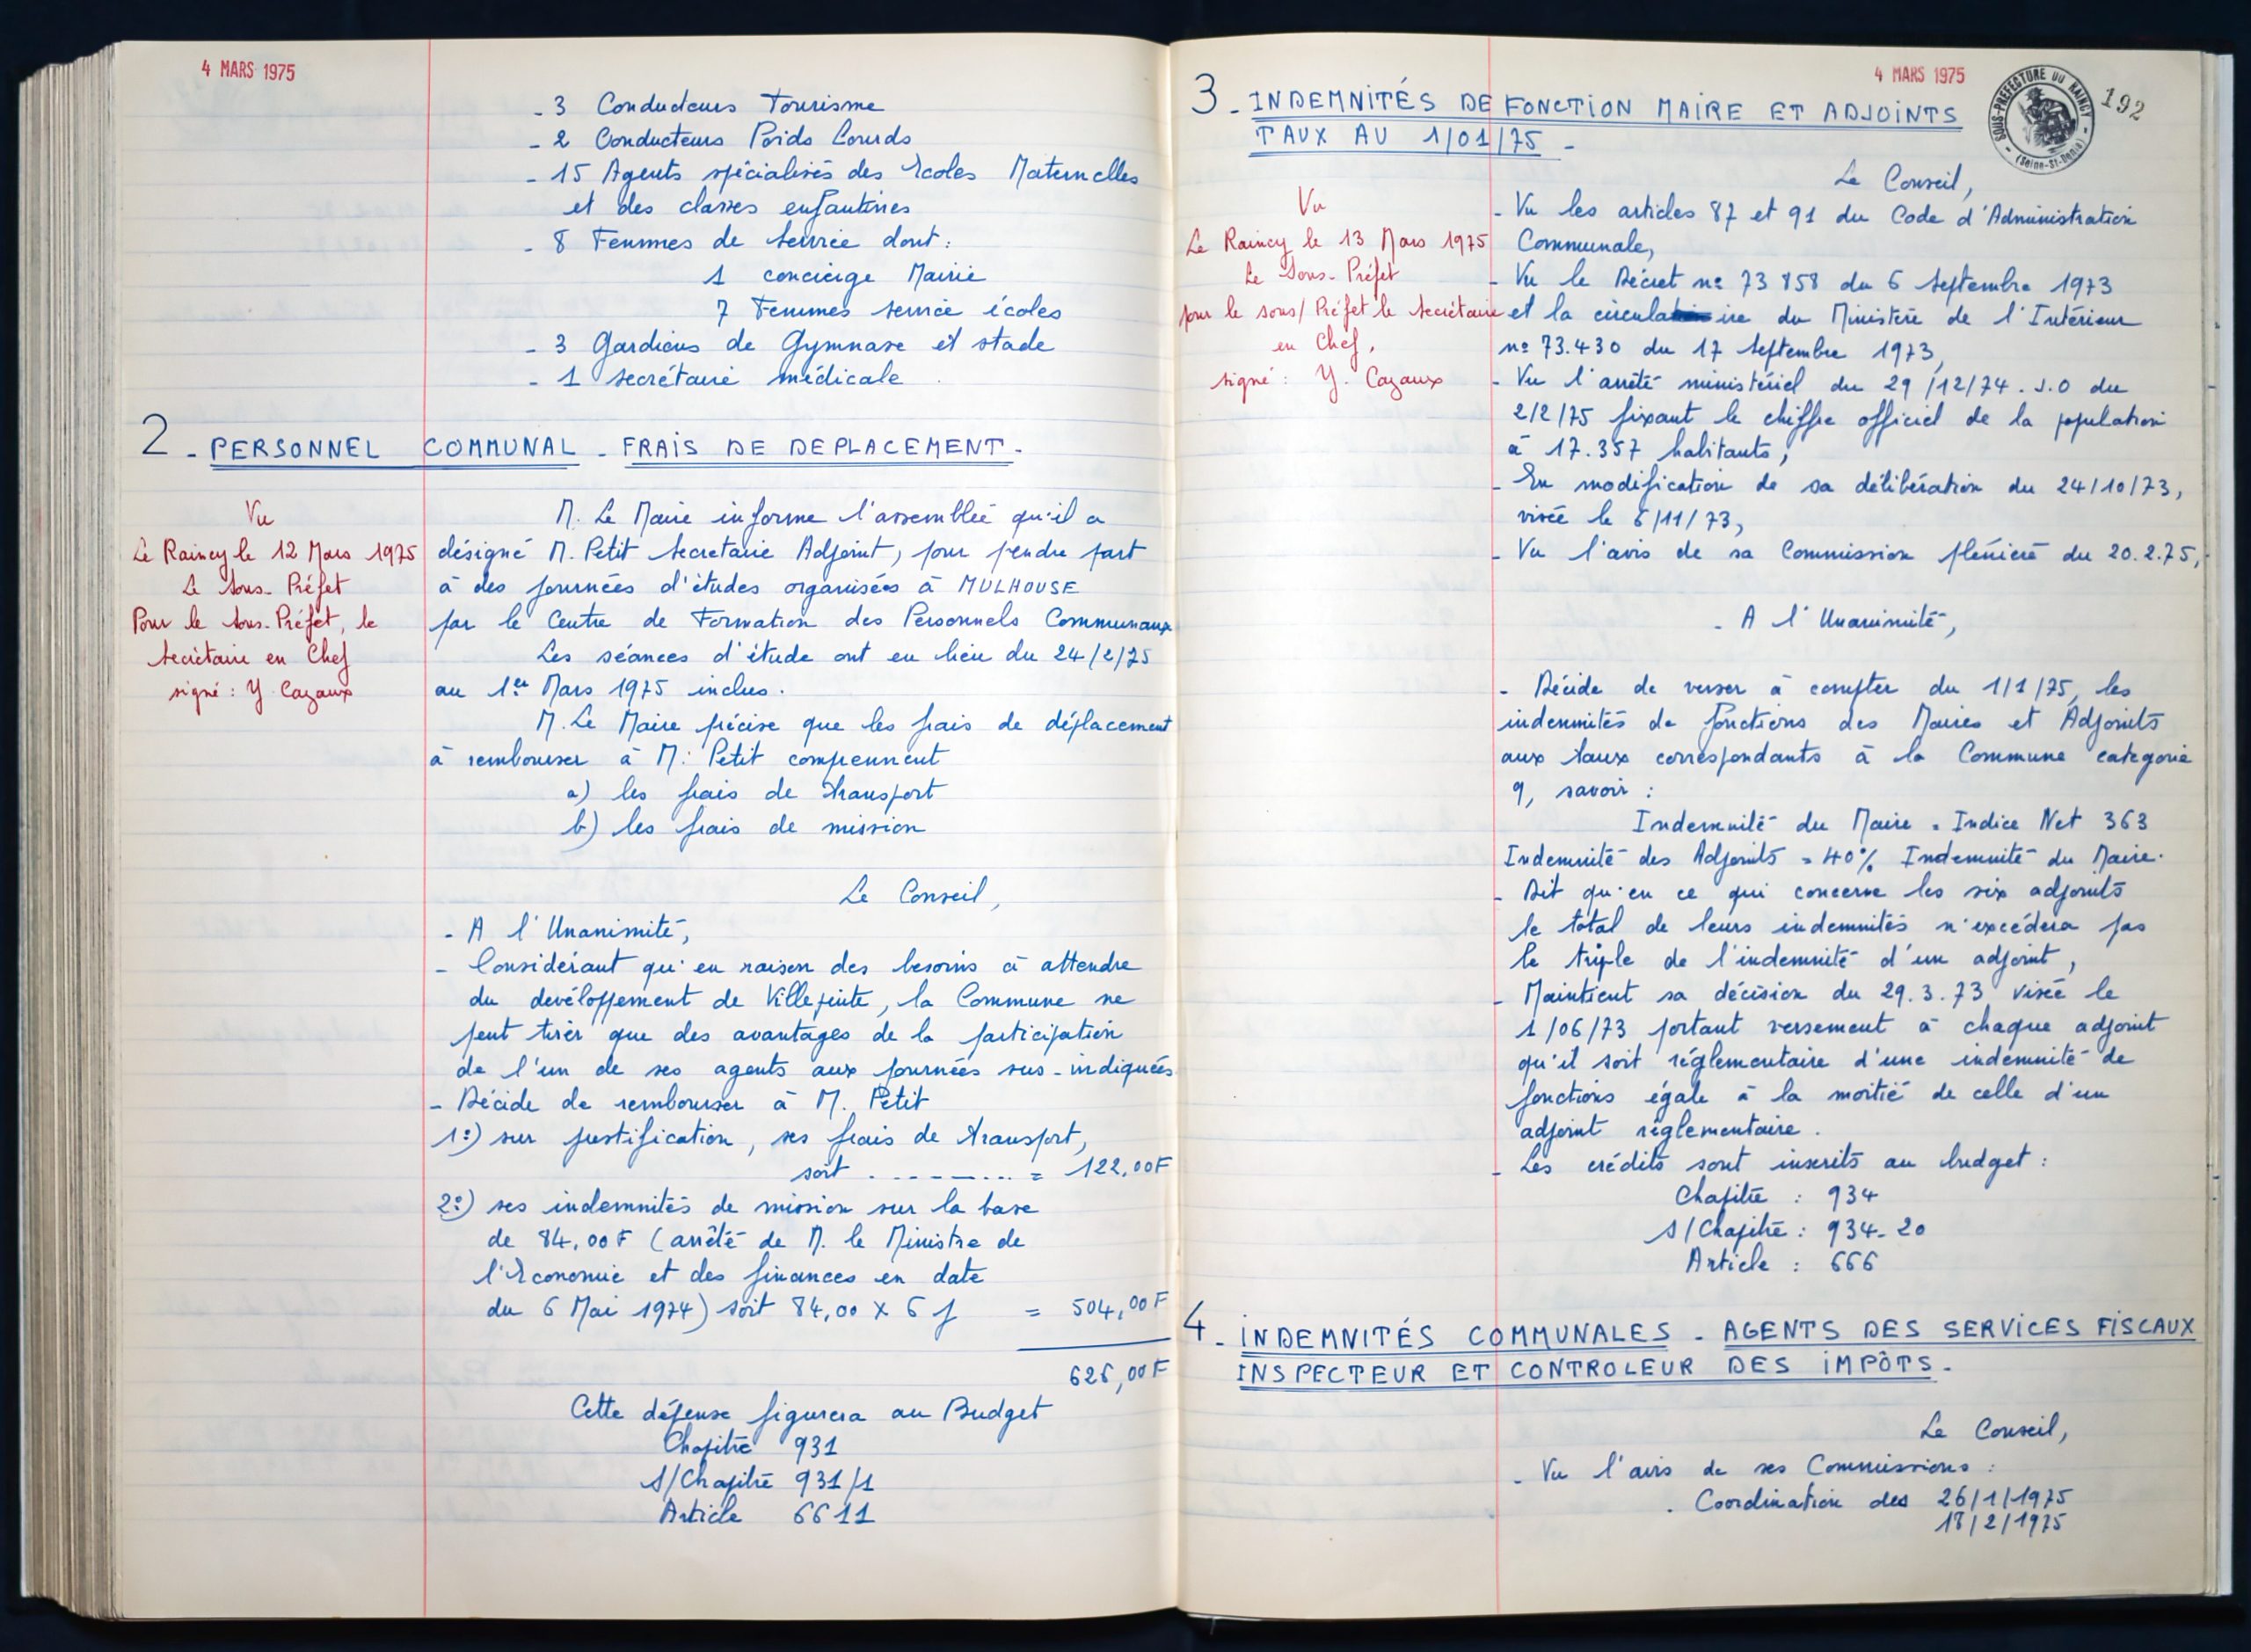 4 MARS 1975
- 3 Conducteurs Tourisme
- 2 Conducteurs Poids Lourds
- 15 Agents spécialisés des Ecoles Maternelles
et des classes enfantines
- 8 Femmes de Service dont :
1 concierge Mairie
7 Femmes service écoles
- 3 Gardiens de Gymnase et stade
- 1 secrétaire médicale
2 - PERSONNEL COMMUNAL - FRAIS DE DEPLACEMENT -
Vu
Le Raincy le 12 Mars 1975
Le Sous-Préfet
Pour le Sous-Préfet, le
Secrétaire en Chef
signé : Y Cazaux
M. Le Maire informe l'assemblée qu'il a
désigné M. Petit Secretaire Adjoint, pour pendre part
à des journées d'études organisées à MULHOUSE
par le Centre de Formation des Personnels Communaux
Les séances d'étude ont eu lieu du 24/2/75
au 1er Mars 1975 inclus.
M. Le Maire précise que les frais de déplacement
à rembourser à M. Petit comprennent
a) les frais de transport
b) les frais de mission
Le Conseil,
- A l'Unanimité,
- Considérant qu'en raison des besoins à attendre
du devéloppement de Villepinte, la Commune ne
peut tirer que des avantages de la participation
de l'un de ses agents aux journées sus-indiquées
- Décide de rembourser à M. Petit
1°) sur justification, ses frais de transport,
soit .......... = 122,00F
2°) ses indemnités de mission sur la base
de 84,00F (arrêté de M. le Ministre de
l'Economie et des finances en date
du 6 Mai 1974) soit 84,00 X 6 j = 504,00F
626,00F
Cette dépense figurera au Budget
Chapitre 931
S/Chapitre 931/1
Article 6611
4 MARS 1975
SOUS-PRÉFECTURE DU RAINCY
(Seine-St-Denis)
192
3 - INDEMNITÉS DE FONCTION MAIRE ET ADJOINTS
TAUX AU 1/01/75 -
Vu
Le Raincy le 13 Mars 1975
Le Sous-Préfet
pour le sous/Préfet le Secrétaire
en Chef,
signé : Y. Cazaux
Le Conseil,
- Vu les articles 87 et 91 du Code d'Administration
Communale,
- Vu le Décret n° 73 858 du 6 Septembre 1973
et la circulaire du Ministère de l'Intérieur
n° 73.430 du 17 Septembre 1973,
- Vu l'arrêté ministériel du 29/12/74. J.O du
2/2/75 fixant le chiffre officiel de la population
à 17.357 habitants,
- En modification de sa délibération du 24/10/73,
visée le 6/11/73,
- Vu l'avis de sa Commission plénière du 20.2.75,
- A l'Unanimité,
- Décide de verser à compter du 1/1/75, les
indemnités de fonctions des Maires et Adjoints
aux taux correspondants à la Commune categorie
9, savoir :
Indemnité du Maire = Indice Net 363
Indemnité des Adjoints = 40% Indemnité du Maire.
- Dit qu'en ce qui concerne les six adjoints
le total de leurs indemnités n'excédera pas
le triple de l'indemnité d'un adjoint,
- Maintient sa décision du 29.3.73 visée le
1/06/73 portant versement à chaque adjoint
qu'il soit réglementaire d'une indemnité de
fonctions égale à la moitié de celle d'un
adjoint réglementaire.
- Les crédits sont inscrits au budget :
Chapitre : 934
S/Chapitre : 934-20
Article : 666
4 - INDEMNITÉS COMMUNALES - AGENTS DES SERVICES FISCAUX
INSPECTEUR ET CONTROLEUR DES IMPÔTS -
Le Conseil,
- Vu l'avis de ses Commissions :
. Coordination des 26/1/1975
18/2/1975